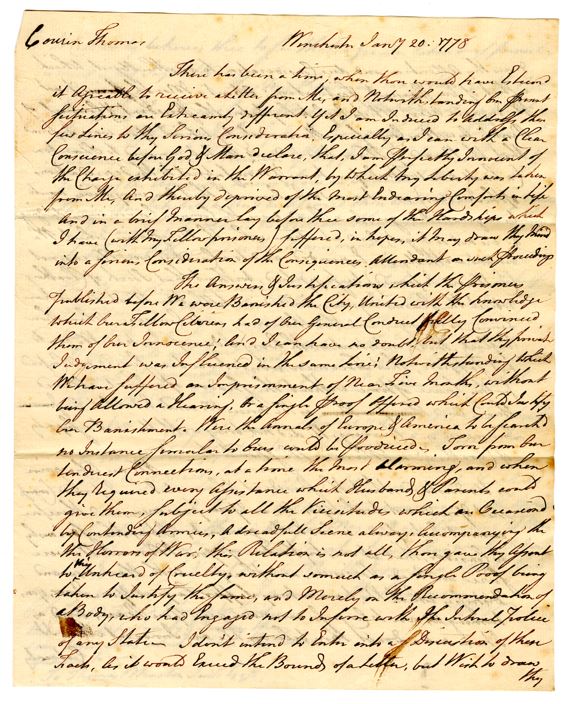 Cousin Thomas Winchester Jany 20: 1778
There has been a time, when thou would have Esteemd
it Agreeable to receive a Letter from Me, and Notwithstanding Our Present
Situations are Extreamly different Yet I am Induced to Address these
few Lines to thy Serious Consideration, Especially as I can with a Clear
Conscience before God & Man declare, that, I am Perfectly Innocent of
the Charge exhibited in the Warrant, by which my Liberty was taken
from Me, And thereby deprived of the most Endearing Comforts in Life
And in a brief Manner lay before thee some of the Hardships which
I have (with My Fellow prisoners) suffered, in hopes, it may draw thy Mind
into a serious Consideration of the Consequences Attendant on such Proceedings
The Answers & Justifications which the Prisoners
Published before We were Banished the City, United with the Knowledge
which our Fellow Citizens had of Our General Conduct fully Convinced
them of our Innocence; And I can have no doubt but that thy private
Judgment was Influenced in the same line; Notwithstanding which
We have suffered an Imprisonment of Near Five Months, without
being Allowed a Hearing, or a single Proof offered which Could Justify
Our Banishment. Were the Annals of Europe & America to be searchd
no Instance simular to Ours could be Produced, Torn from Our
tenderest Connections, at a time the most alarming, and when
they required every Assistance which Husbands & Parents could
give them, subject to all the Vicissitudes which are Occasiond
by Contending Armies, A dreadfull Scene always Accompanying the
the Horrors of War; this Relation is not all, thou gave thy Assent
to this Unheard of Cruelty, without so much as a single Proof being
taken to Justify the same, and Merely on the Recommendation of
a Body, who had Engaged not to Interfere with The Internal Police
of any State I don't intend to Enter into a Discussion of these
Facts, as it would Exceed the Bounds of a Letter, but Wish to draw
thy